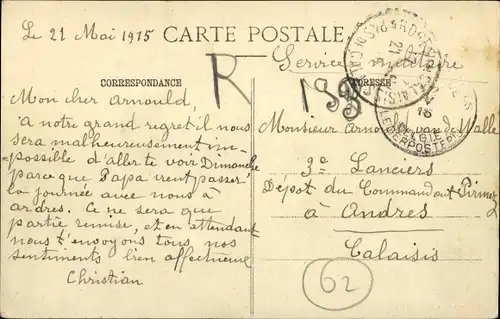 Le 21 Mai 1915
CARTE POSTALE
Service militaire
R
193
CORRESPONDANCE
ADRESSE
Mon cher Arnould,
a notre grand regret il nous
sera malheureusement im-
possible d'aller te voir Dimanche
parce que Papa vient passer
la journée avec nous à
ardres. Ce ne sera que
partie remise, et en attendant
nous t'envoyons tous nos
sentiments bien affectueux
Christian
Monsieur Arnould van de Walle
3e Lanciers
Dépôt du Commandant Pirmez
à Andres
Calaisis
62